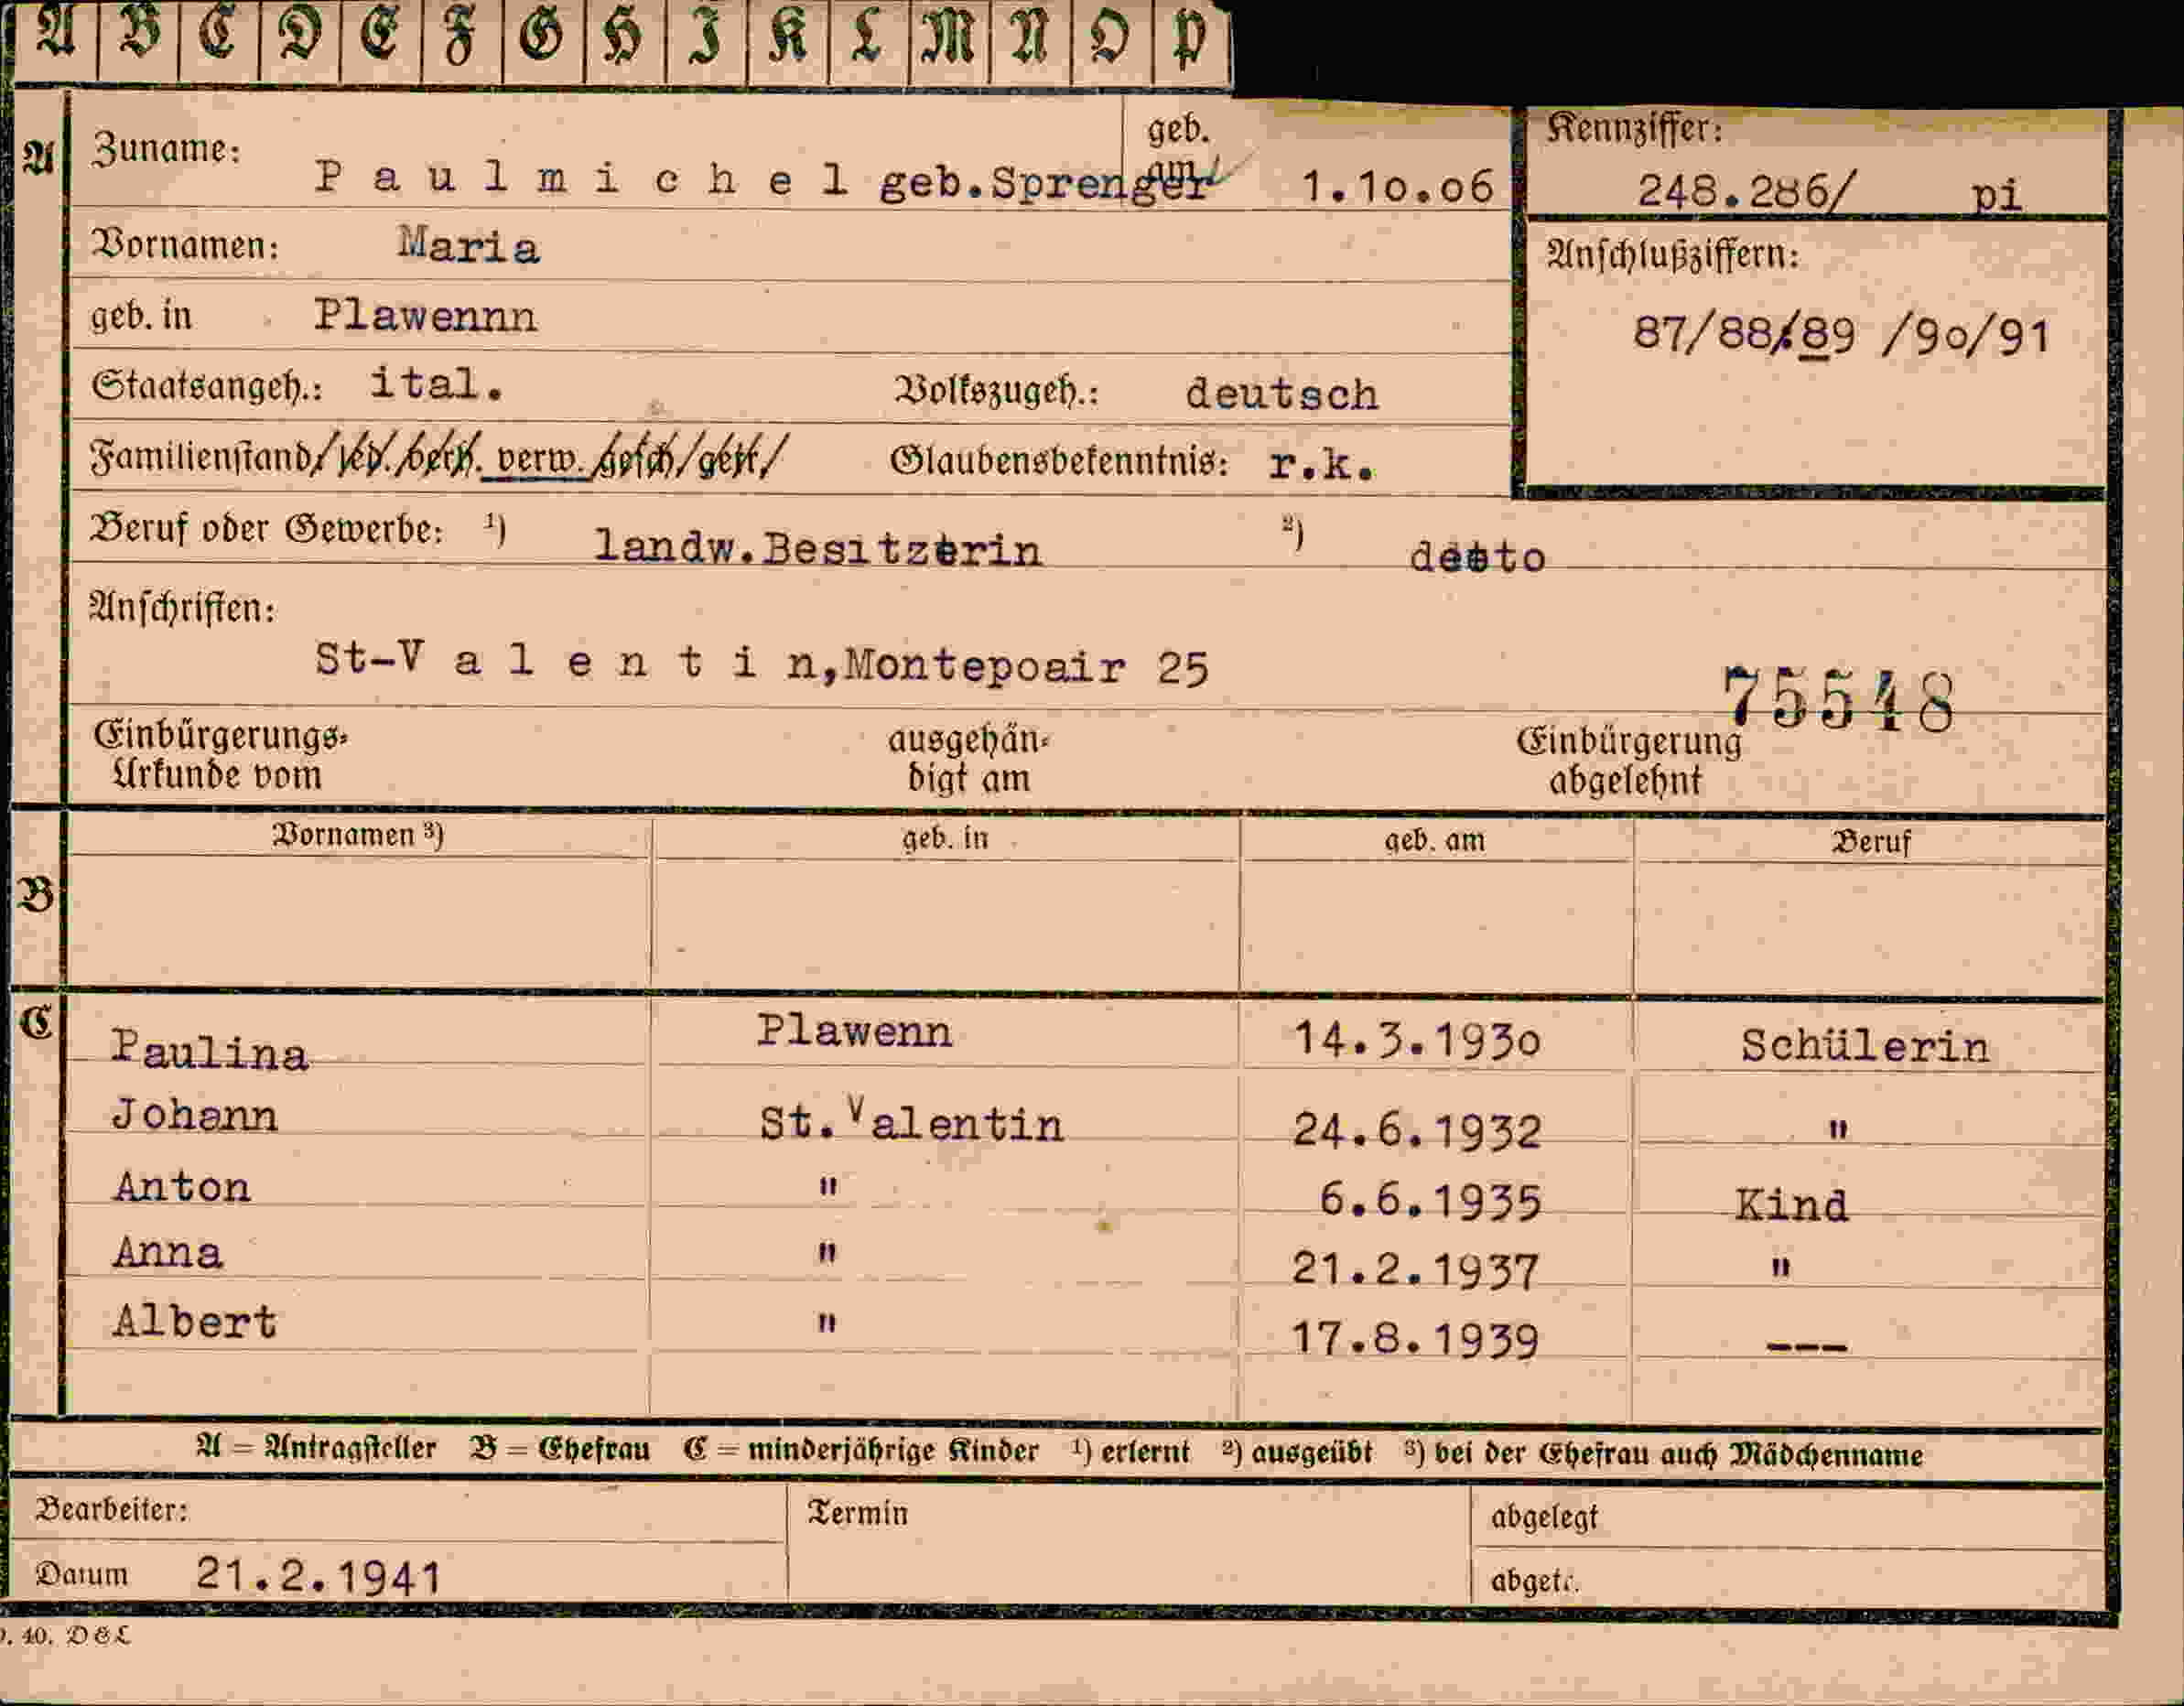 A B C D E F G H I K L M N O P
A Zuname: P a u l m i c h e l geb.Sprenger geb. am 1.10.06
Kennziffer: 248.286/ pi
Vornamen: Maria
Anschlußziffern:
geb. in Plawennn
87/88/89 /90/91
Staatsangeh.: ital. Volkszugeh.: deutsch
Familienstand/led./verh. verw. /gesch/getr/ Glaubensbekenntnis: r.k.
Beruf oder Gewerbe: 1) landw.Besitzerin 2) detto
Anschriften:
St-V a l e n t i n,Montepoair 25
75548
Einbürgerungs- ausgehän- Einbürgerung
Urkunde vom digt am abgelehnt
Vornamen 3) geb. in geb. am Beruf
B
C Paulina Plawenn 14.3.1930 Schülerin
Johann St.Valentin 24.6.1932 "
Anton " 6.6.1935 Kind
Anna " 21.2.1937 "
Albert " 17.8.1939 ---
A = Antragsteller B = Ehefrau C = minderjährige Kinder 1) erlernt 2) ausgeübt 3) bei der Ehefrau auch Mädchenname
Bearbeiter: Termin abgelegt
Datum 21.2.1941 abgetr.
. 40. D&L